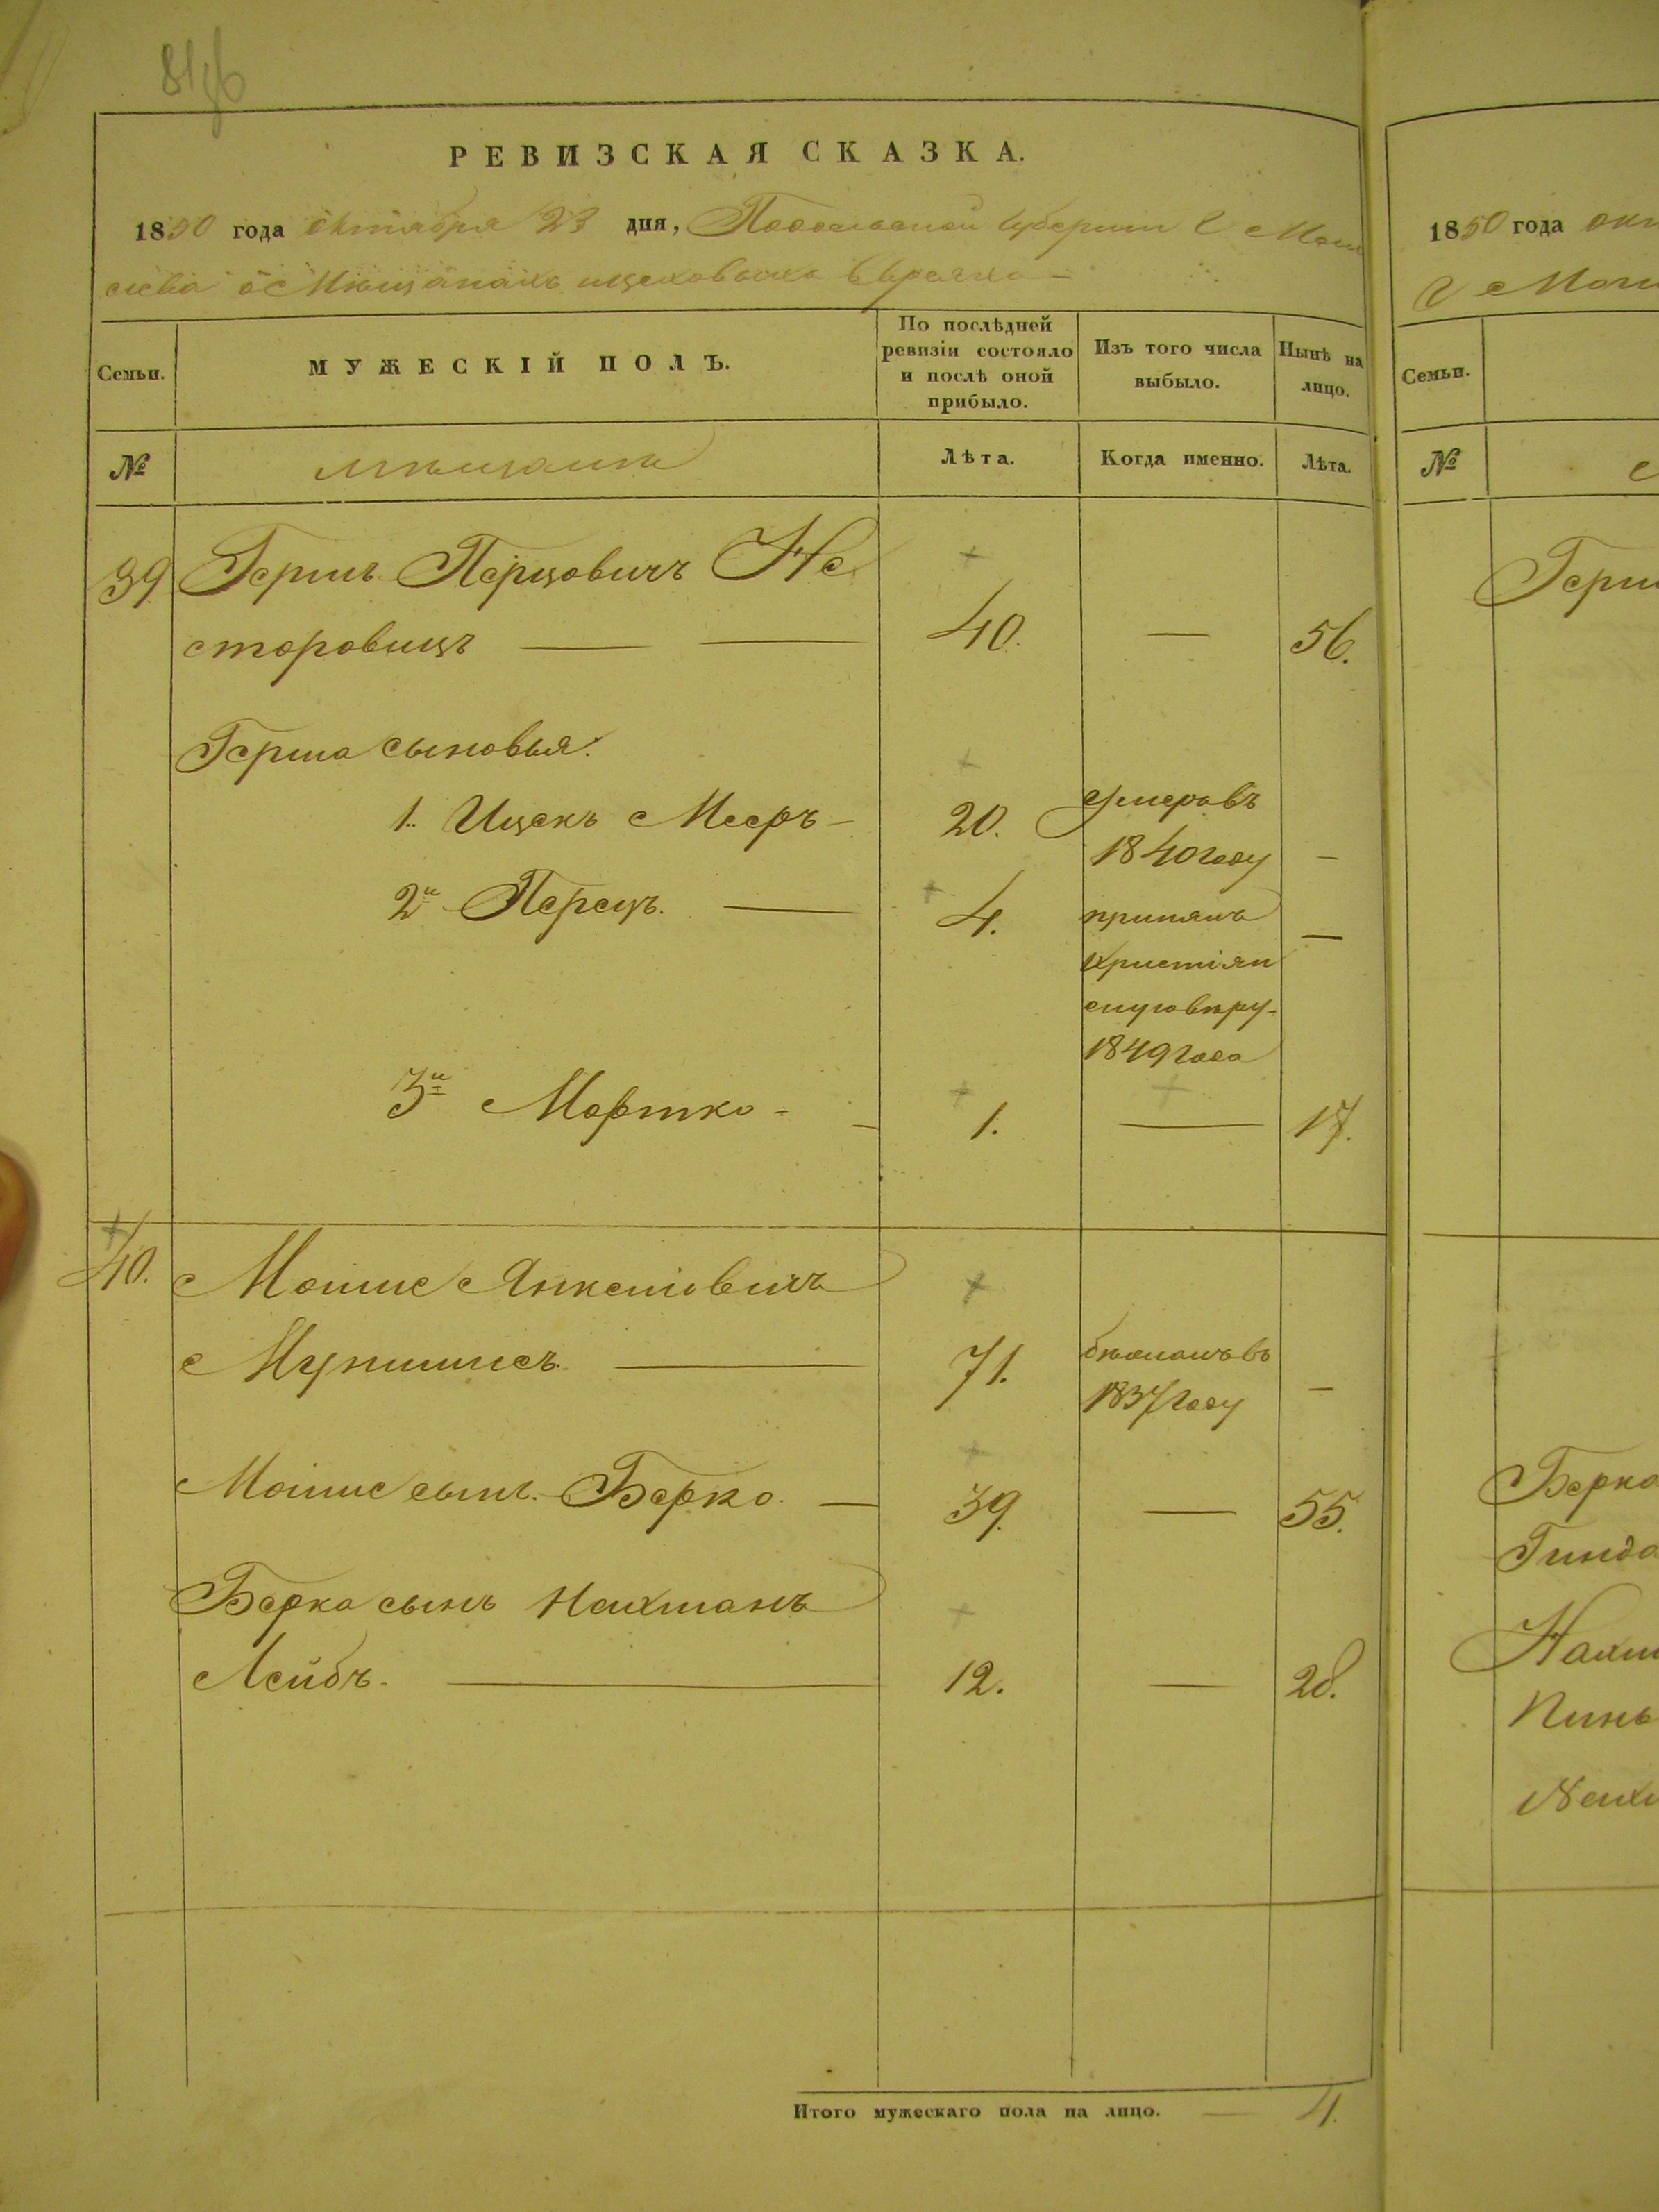 81 об
РЕВИЗСКАЯ СКАЗКА.
1850 года октября 23 дня, Подольской губернии г Моги
лева о Мѣщанахъ ицеховыхъ Евреяхъ
Семьи.
МУЖЕСКІЙ ПОЛЪ.
По послѣдней ревизіи состояло и послѣ оной прибыло.
Изъ того числа выбыло.
Нынѣ на лицо.
№
мѣщане
Лѣта.
Когда именно.
Лѣта.
39 Гершъ Перцовичъ Не
сторовицъ 40. — 56.
Герша сыновья:
1. Ицекъ Мееръ — 20. Умеръ въ
1840 году —
2й Перецъ. — 4. принялъ —
христіян
скую вѣру
1849 года
3й Мортко - 1. — 17.
40. Мошко Янкелiовичъ
71. 1837 году —
сынъ Берко. — 39. — 55.
Берка сынъ Нахманъ
Лейбъ. — 12. — 28.
Итого мужескаго пола на лицо. — 4.
1850 года окт
г Моги
Семьи.
№
Герш
Берка
Гинда
Нахм